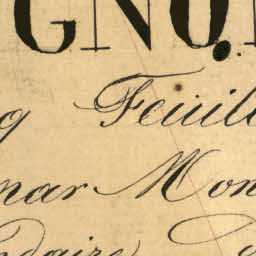 GNO.
g Feuill
mar Mon
ndaire